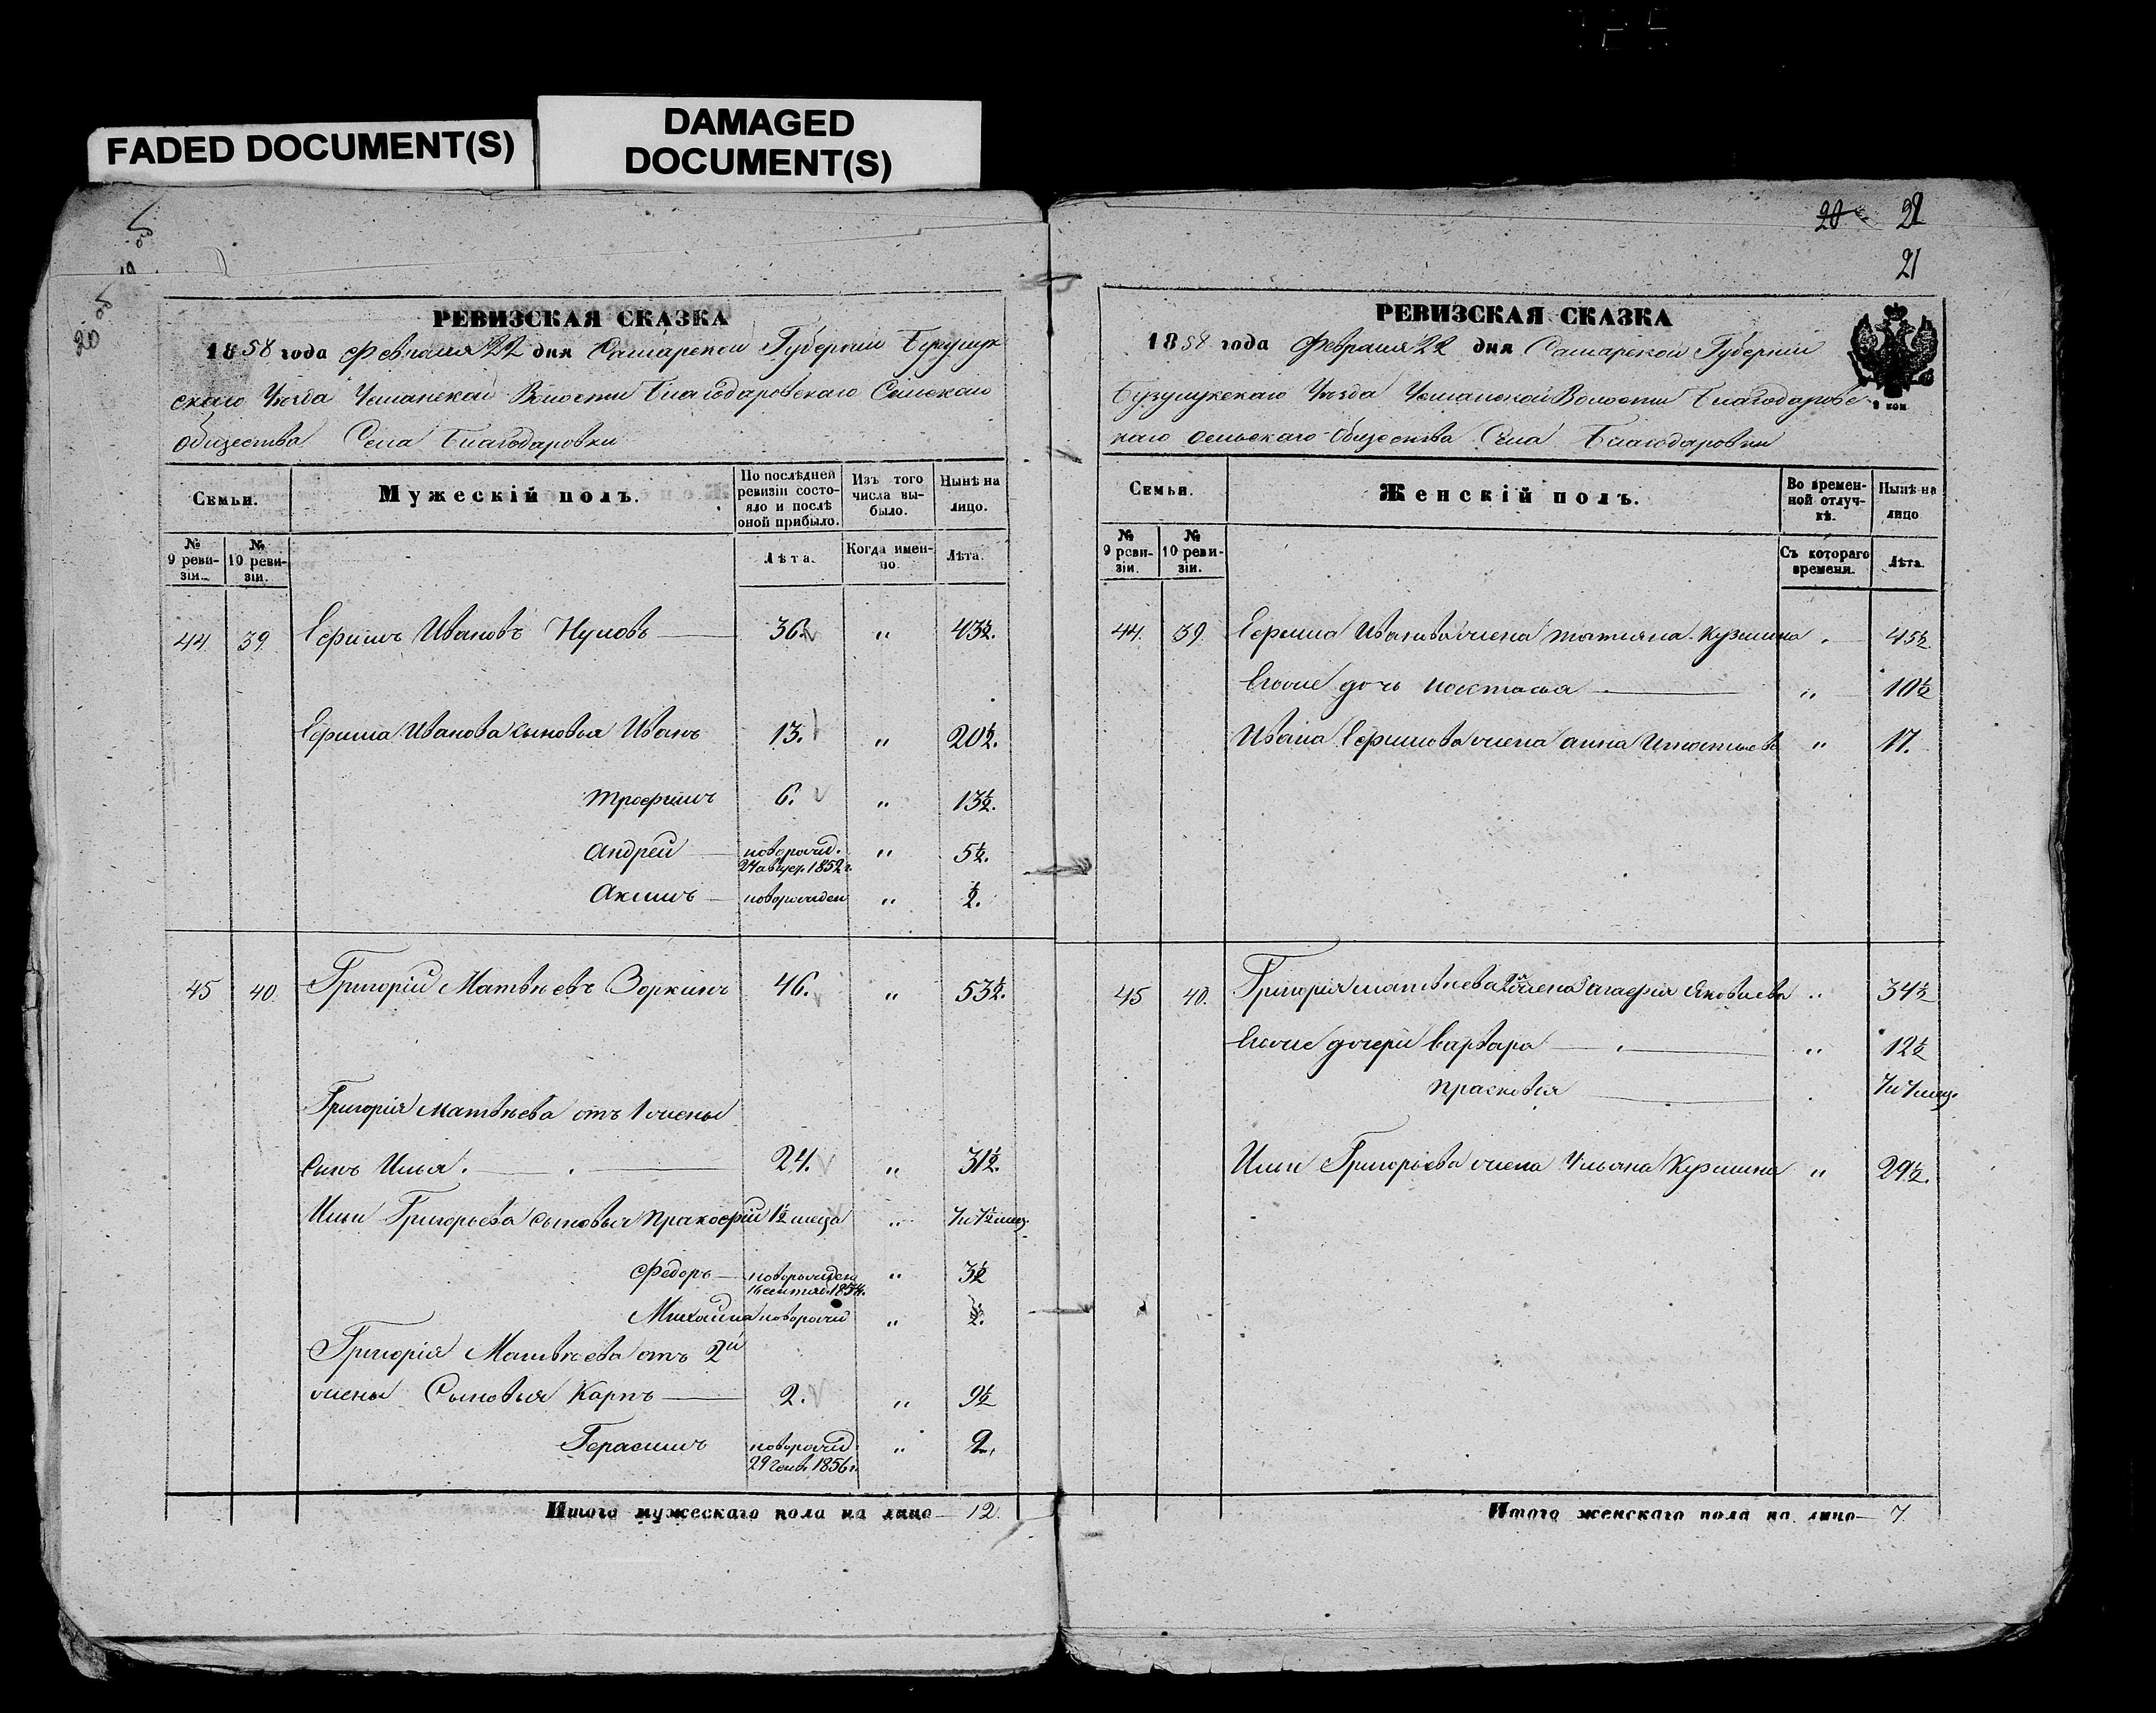 FADED DOCUMENT(S)
DAMAGED
DOCUMENT(S)
20
РЕВИЗСКАЯ СКАЗКА
1858 года Февраля 22 дня Самарской Губернии Бузулук
скаго Уезда Усманской Волости Благодаровскаго Сельскаго
общества Села Благодаровки
Семьи.
Мужескій полъ.
По послѣдней ревизіи состояло и послѣ оной прибыло.
Изъ того числа выбыло.
Нынѣ на лицо.
№ 9 ревизіи.
№ 10 ревизіи.
Лѣта.
Когда именно.
Лѣта.
44. 39. Ефимъ Ивановъ 36. " 43½.
Ефима Иванова сыновья Иванъ 13. " 20½.
Трофимъ 6. " 13½.
Андрей новорожд. " 5½.
1852 г.
Акимъ новорожден " ½.
45 40. Григорій Матвѣевъ Зоркинъ 46. " 53½.
Григорія Матвѣева отъ 1 жены
сынъ Илья. 24. " 31½.
Ильи Григорьева сыновья Пракофій 1½ меца " 7 и 7½ мец.
Федоръ новорожден " 3½
16 сентяб. 1854.
Михайла новорожд " ½.
Григорія Матвѣева отъ 2й
жены Сыновья Карпъ 2. " 9½
Герасимъ новорожд " 2.
29 Генв. 1856 г.
Итого мужескаго пола на лицо 12.
20 22
21
РЕВИЗСКАЯ СКАЗКА
1858 года Февраля 22 дня Самарской Губерніи
Бузулукскаго Уѣзда Усманской Волости Благодаровс
каго сельскаго общества Села Благодаровки
Семьи.
Женскій полъ.
Во временной отлучкѣ.
Нынѣ на лицо
№ 9 ревизіи.
№ 10 ревизіи.
Съ котораго времени.
Лѣта.
44. 39. Ефима Иванова жена Татьяна Кузмина 45½
Ево же дочь Настасья " 10½
Ивана Ефимова жена Анна Игнатьева " 17.
45 40. Григорія Матвѣева 2я жена Агафия Яковлева " 34½
Ево же дочери Варвара " 12½
Прасковья 7 и 7 мец.
Ильи Григорьева жена Ульяна Кузмина " 29½.
Итого женскаго пола на лицо 7.